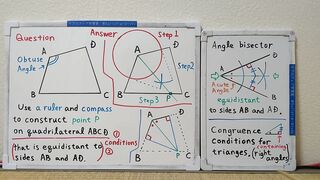 Question
A
D
Obtuse
Angle
B
C
Answer
Step 1
A
D
Step2
Step3
P
B
C
Use a ruler and compass
to construct point P
on quadrilateral ABCD
that is equidistant to
sides AB and AD.
① conditions
②
A
D
B
P
C
Angle bisector
A
B
D
Acute
Angle
equidistant
to sides AB and AD.
Congruence
conditions for
trianges, (containing
right
angles)